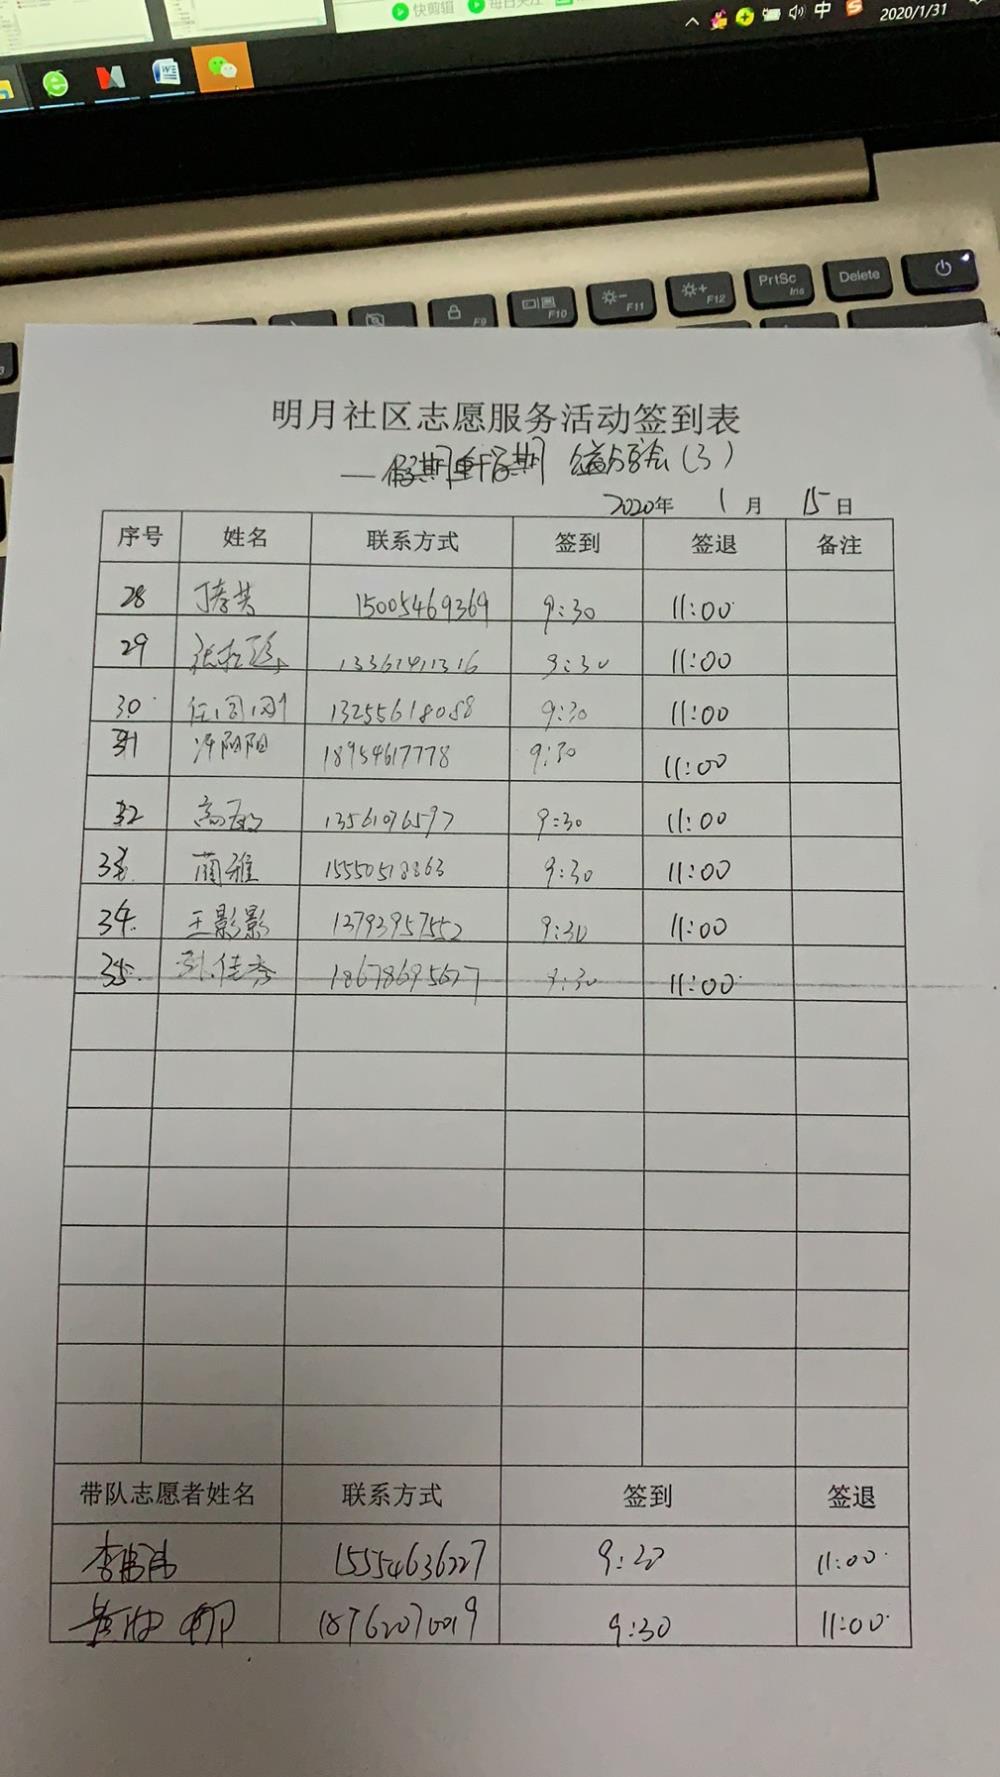 快剪辑
每日关注
中
2020/1/31
F9
F10
F11
F12
PrtSc
Ins
Delete
明月社区志愿服务活动签到表
(3)
2020年 1月 15日
序号 姓名 联系方式 签到 签退 备注
28 丁春芸 15005469369 9:30 11:00
29 13361411316 9:30 11:00
30 任国网 13255618088 9:30 11:00
31 阳阳 18954617778 9:30 11:00
32 高 13561076597 9:30 11:00
33 蔺雅 15550518863 9:30 11:00
34 王影影 13793957552 9:30 11:00
35 孙佳秀 18678695627 9:30 11:00
带队志愿者姓名 联系方式 签到 签退
李 15554636227 9:20 11:00
18762070019 9:30 11:00